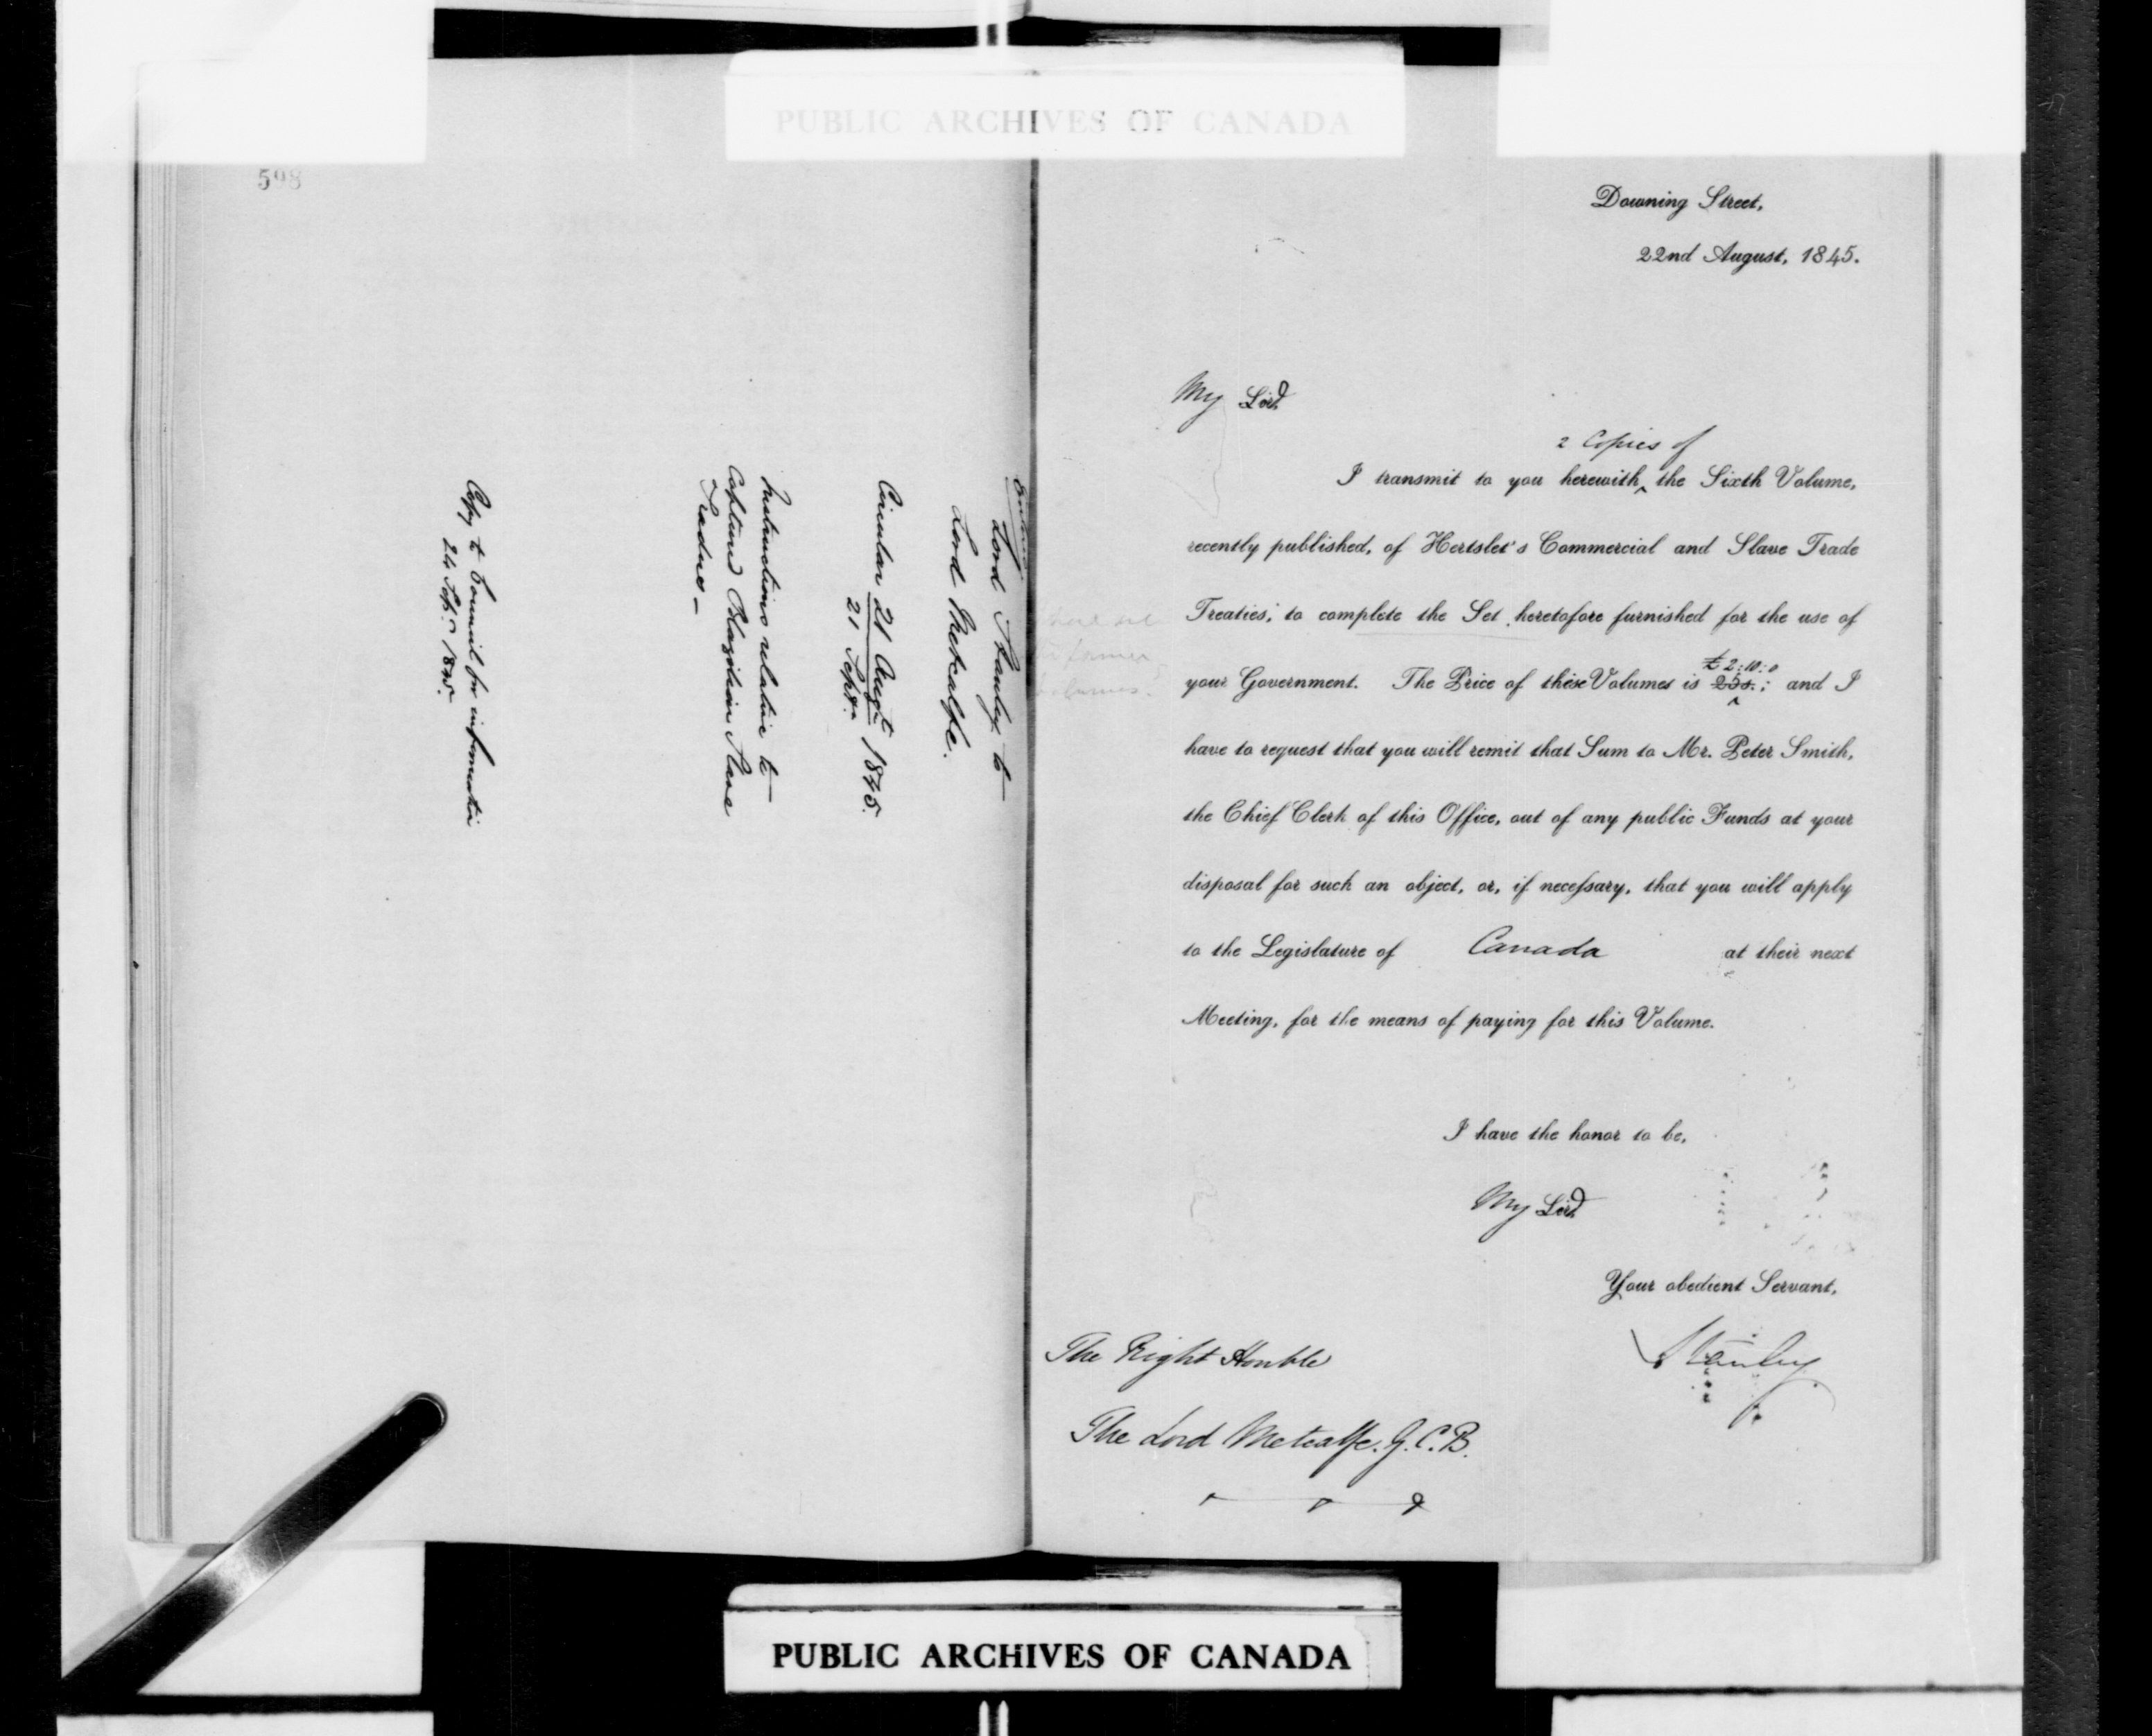 PUBLIC ARCHIVES OF CANADA
598
Lord Stanley to
Lord Metcalfe.
Circular 21 Augt 1845.
21 Sepr.
Instructions relative to
Captured Brazilian Slave
Traders —
Copy to Council for information
24 Sepr. 1845.
Downing Street,
22nd August, 1845.
My Lord
2 Copies of
I transmit to you herewith, the Sixth Volume,
recently published, of Hertslet's Commercial and Slave Trade
Treaties; to complete the Set heretofore furnished for the use of
your Government. The Price of these Volumes is 25s.; and I
£2:10:0
have to request that you will remit that Sum to Mr. Peter Smith,
the Chief Clerk of this Office, out of any public Funds at your
disposal for such an object, or, if necessary, that you will apply
to the Legislature of Canada at their next
Meeting, for the means of paying for this Volume.
I have the honor to be,
My Lord
Your obedient Servant,
Stanley
The Right Honble
The Lord Metcalfe. G.C.B.
PUBLIC ARCHIVES OF CANADA